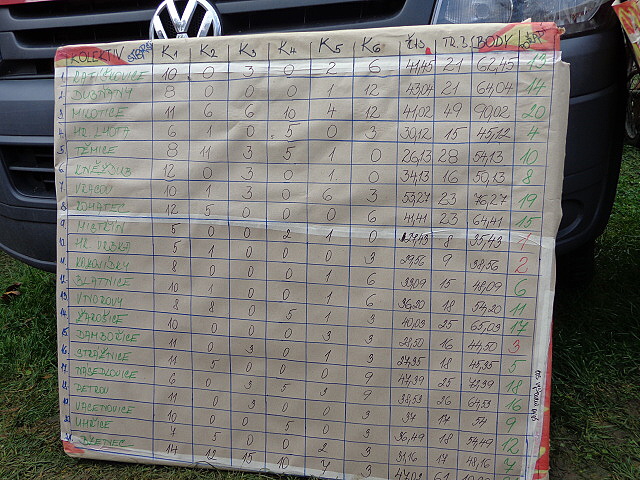 KOLEKTIV STARŠÍ K1 K2 K3 K4 K5 K6 ČAS TR.B. BODY POŘADÍ
1 RATÍŠKOVICE 10 0 3 0 2 6 41,45 21 62,45 13
2 DUBŇANY 8 0 0 0 1 12 43,04 21 64,04 14
3 MILOTICE 11 6 6 10 4 12 41,02 49 90,02 20
4 HR. LHOTA 6 1 0 5 0 3 30,12 15 45,12 4
5 TĚMICE 8 11 3 5 1 0 26,13 28 54,13 10
6 KNĚŽDUB 12 0 3 0 1 0 34,13 16 50,13 8
7 VRACOV 10 1 3 0 6 3 53,27 23 76,27 19
8 ROHATEC 12 5 0 0 0 6 41,41 23 64,41 15
9 MISTŘÍN 5 0 0 2 1 0 27,43 8 35,43 1
10 HR. VRBKA 5 1 0 0 0 3 29,56 9 38,56 2
11 8 0 0 0 1 6 33,09 15 48,09 6
12 BLATNICE 10 1 0 0 1 6 36,20 18 54,20 11
13 VNOROVY 8 8 0 5 1 3 40,03 25 65,03 17
14 ŽAROŠICE 10 0 0 0 3 28,50 16 44,50 3
15 DAMBOŘICE 11 0 3 0 1 3 27,95 18 45,95 5
16 STRÁŽNICE 11 5 0 0 0 9 47,39 25 72,39 18
17 NASEDLOVICE 6 0 3 5 3 9 38,53 26 64,53 16
18 PETROV 11 0 3 0 0 3 37 17 54 9
19 VACENOVICE 10 0 0 5 0 3 36,49 18 54,49 12
20 UHŘICE 7 5 0 0 2 3 31,16 17 48,16 7
21 14 12 15 10 7 3 47,02 61